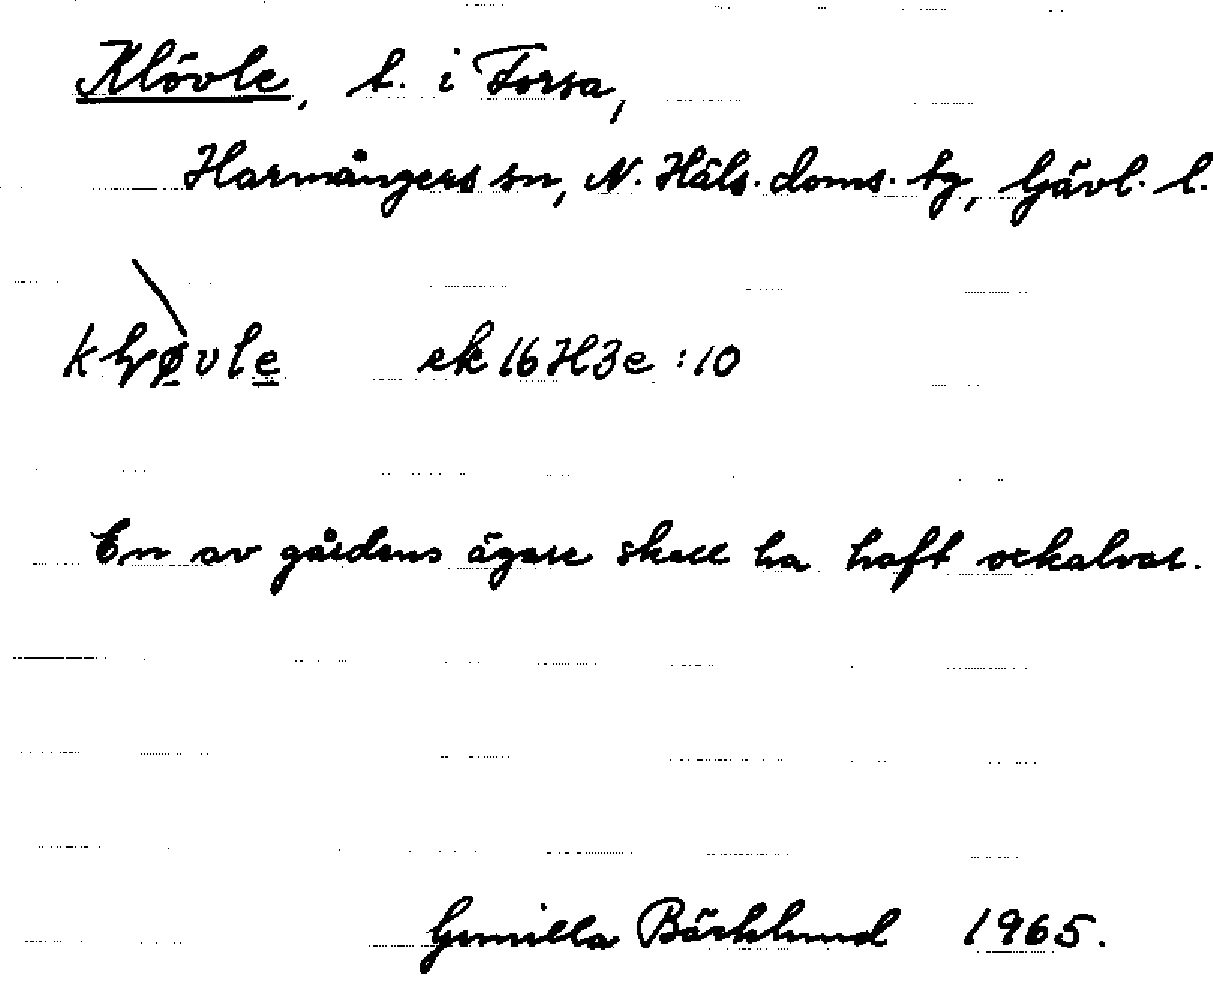 Klövle, l. i Forsa,
Harmångers sn, N. Häls. doms. tg, Gävl. l.
ek 16H3e :10
En av gårdens ägare skall ha haft ockalvar.
Gunilla Bäcklund 1965.